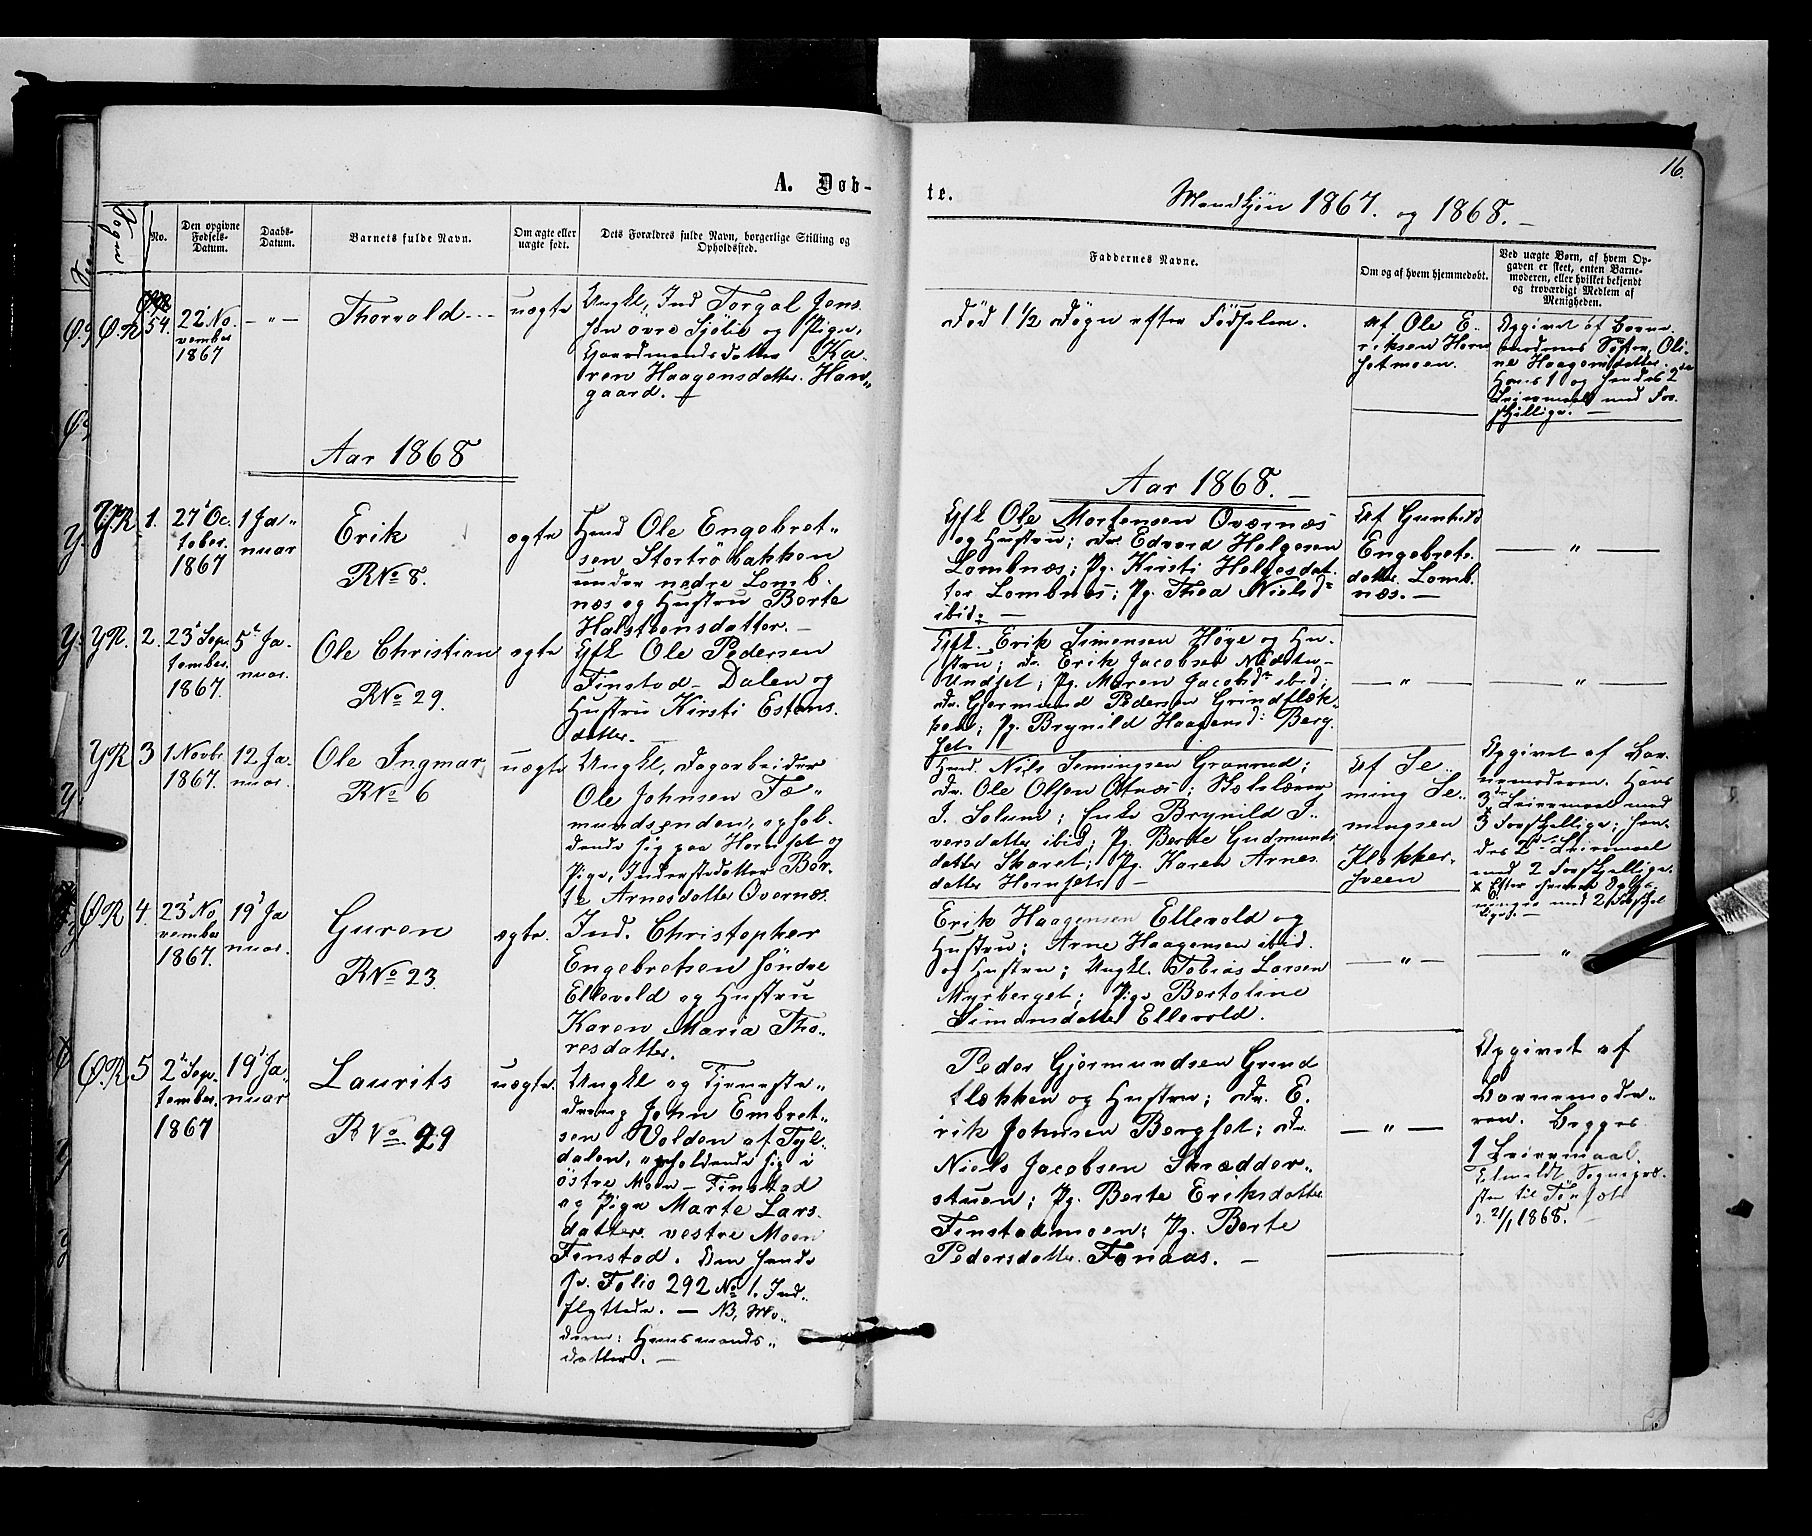 16.
A. Døb-
te.
Mandkjøn 1867. og 1868. —
Sogn
No.
Den opgivne
Fødsels-
Datum.
Daabs-
Datum.
Barnets fulde Navn.
Om ægte eller
uægte født.
Dets Forældres fulde Navn, borgerlige Stilling og
Opholdssted.
Faddernes Navne.
Om og af hvem hjemmedøbt.
Ved uægte Børn, af hvem Op-
gaven er skeet, enten Barne-
moderen, eller hvilket bekjendt
og troværdigt Medlem af
Menigheden.
ØR
54.
22 No-
vember
1867
— „ —
Thorvald
uægte
Ungkl, Ind Torgal Jens-
søn øvre Sjølie og Pige,
Gaardmandsdatter Ka-
ren Haagensdatter Han-
gaard.
Død 1 1/2 Døgn efter Fødselen.
Af Ole E-
riksen Horn-
setmoen.
Opgivet af Barne-
moderens Søster, Oli-
ne Haagensdatter;
Hans 1 og hendes 2
Leiermaal med For-
skjellige. —
Aar 1868
Aar 1868. —
YR
1.
27 Oc-
tober
1867
1 Ja-
nuar
Erik
R No 8.
ægte
Hmd Ole Engebret-
sen Stortrøbakken
under nedre Lomb-
næs og Hustru Berte
Halstensdatter. —
Gft Ole Mortensen Overnæs
og Hustru; Dr. Edvard Helgesen
Lombnæs; Pg. Kirsti Helgesdat-
ter Lombnæs; Pg. Thea Nielsd
ibid. —
Af Gunhild
Engebrets-
datter Lomb-
næs. —
— „ —
YR.
2.
23 Sep-
tember
1867.
5 Ja-
nuar.
Ole Christian
R No 29.
ægte
Gft Ole Pedersen
Finstad-Dalen og
Hustru Kirsti Estens-
datter. —
Gft. Erik Simensen Høye og Hu-
stru; Dr. Erik Jacobsen Nordstu-
Undset; Pg. Maren Jacobsd ibid;
Dr. Gjermund Pedersen Grindflæk-
ken; Pg. Brynild Haagensd: Berg-
set. —
— „ —
— „ —
YR
3
1 Novbr
1867.
12 Ja-
nuar.
Ole Ingmar
R No 6
uægte
Ungkl, Dagarbeider
Ole Johnsen Fæ-
mundsenden, ophol-
dende sig paa Hornset og
Pige, Inderstedatter Ber-
te Arnesdatter Overnæs.
Hmd. Nils Simingsen Granrud;
Dr. Ole Olsen Otnæs; Skolelærer
J. Solum; Enke Brynild I-
versdatter ibid; Pg. Berte Gudmunds-
datter Skaret; Pg. Karen Arnes-
datter Hornset. —
Af Se-
ming Se-
mingsen
Klokker-
sveen
Opgivet af Bar-
nemoderen. Hans
3 Leiermaal med
3 Forskjellige; hen-
des 2 Leiermaal
med 2 Forskjellige.
ØR
4.
23 No-
vember
1867.
19 Ja-
nuar.
Guren
R No 23.
ægte.
Ind. Christopher
Engebretsen søndre
Ellevold og Hustru
Karen Maria Tho-
resdatter.
Erik Haagensen Ellevold og
Hustru; Arne Haagensen ibid.
og Hustru; Ungkl. Tobias Larsen
Myrberget; Pige Bertoline
Simensdatter Ellevold.
— „ —
— „ —
ØR
5
2 Sep-
tember
1867
19 Ja-
nuar
Laurits
R No 29
uægte.
Ungkl og Tjeneste-
dreng John Embret-
sen Volden af Tyl-
dalen, opholdende sig i
østre Moen-Finstad
og Pige Marte Lars-
datter vestre Moen
Finstad. Om hende
se Folio 292 No 1. Ind-
flyttede. — NB, Mo-
deren: Huusmands-
datter. —
Peder Gjermundsen Grind-
flækken og Hustru; Dr. E-
rik Johnsen Bergset; Dr
Niels Jacobsen Skrædder-
stuen; Pg. Berte Eriksdatter
Finstadmoen; Pg. Berte
Pedersdatter Fonaas. —
— „ —
Opgivet af
Barnemode-
ren. Begges
1 Leiermaal.
Udmeldt Sognepræ-
sten til Tønset
d. 21/1 1868. —